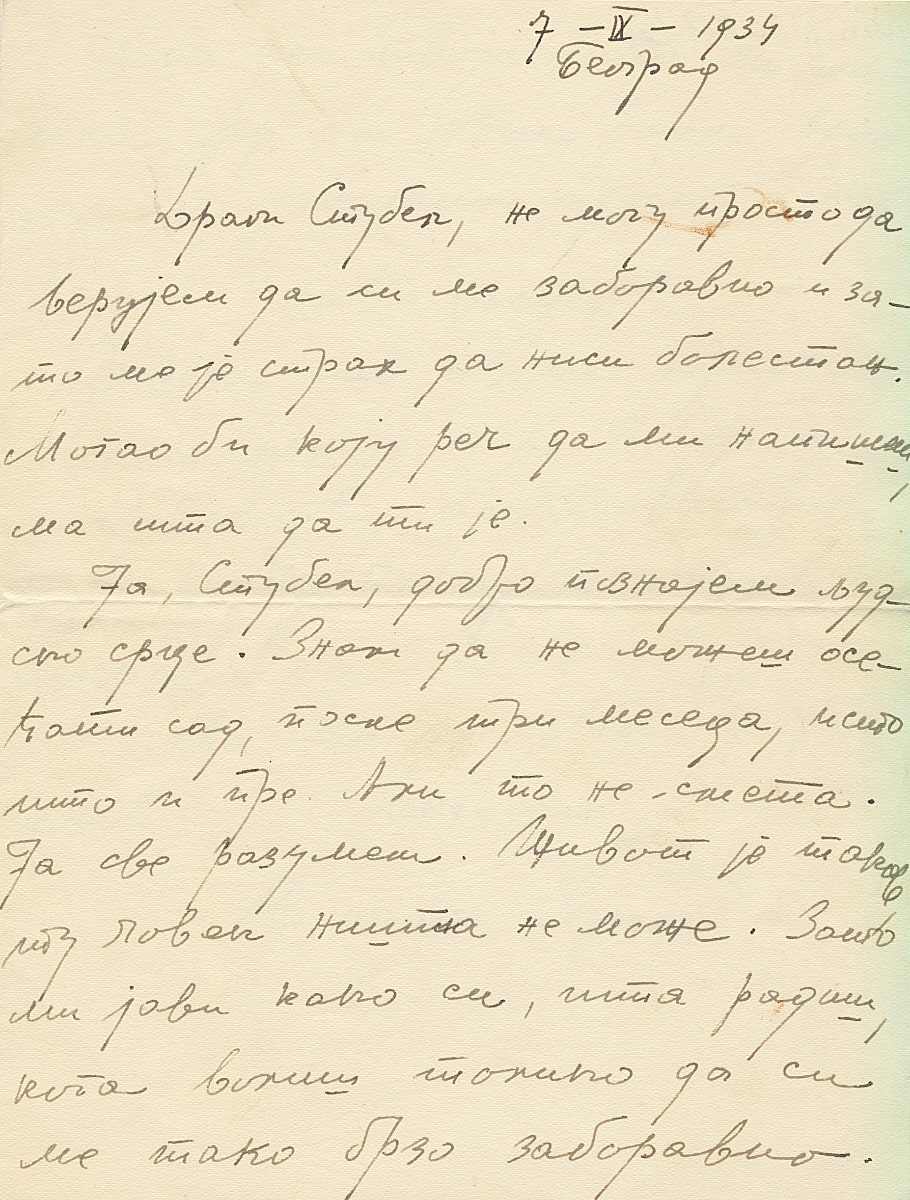 7 – IX – 1934
Београд
Драги Стубек, не могу просто да
верујем да си ме заборавио и за-
то ме је страх да ниси болестан.
Могао би коју реч да ми напишеш,
ма шта да ти је.
Ја, Стубек, добро познајем људ-
ско срце. Знам да не можеш осе-
ћати сад, после три месеца, исто
што и пре. Али то не смета.
Ја све разумем. Живот је такав
ту човек ништа не може. Зашто
ми јави како си, шта радиш,
кога волиш толико да си
ме тако брзо заборавио.